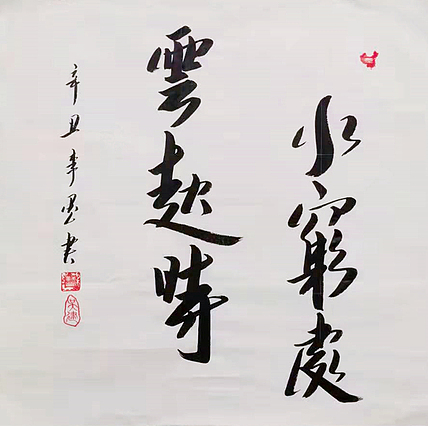 水窮處
雲起時
辛丑年墨書